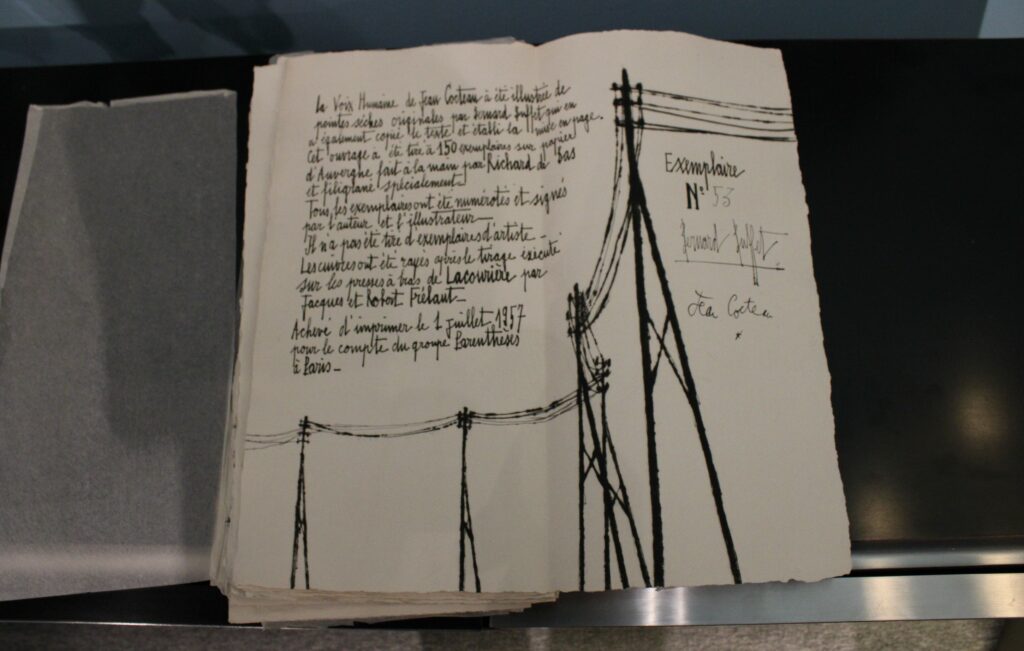 La Voix Humaine de Jean Cocteau a été illustrée de
pointes sèches originales par Bernard Buffet qui en
a également copié le texte et établi la mise en page.
Cet ouvrage a été tiré à 150 exemplaires sur papier
d'Auvergne fait à la main par Richard de Bas
et filigrané spécialement_
Tous les exemplaires ont été numérotés et signés
par l'auteur et l'illustrateur_
Il n'a pas été tiré d'exemplaires d'artiste_
Les cuivres ont été rayés après le tirage exécuté
sur les presses à bras de Lacourière par
Jacques et Robert Frélaut_
Achevé d'imprimer le 1 juillet 1957
pour le compte du groupe Parenthèses
à Paris_
Exemplaire
N° 53
Bernard Buffet
Jean Cocteau
*